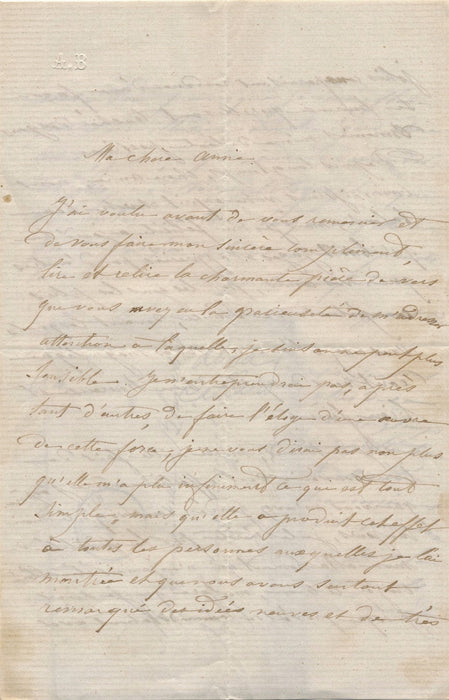 A.B
Ma chère Annie.
J'ai voulu avant de vous remercier et
de vous faire mon sincère compliment,
lire et relire la charmante pièce de vers
que vous avez eu la gracieuseté de m'adresser
attention à laquelle, je suis on ne peut plus
sensible. Je n'entreprendrai pas, après
tant d'autres, de faire l'éloge d'une œuvre
de cette force, je ne vous dirai pas non plus
qu'elle m'a plu infiniment ce qui est tout
simple, mais qu'elle a produit cet effet
à toutes les personnes auxquelles je l'ai
montrée et que nous avons surtout
remarqué des idées neuves et de très